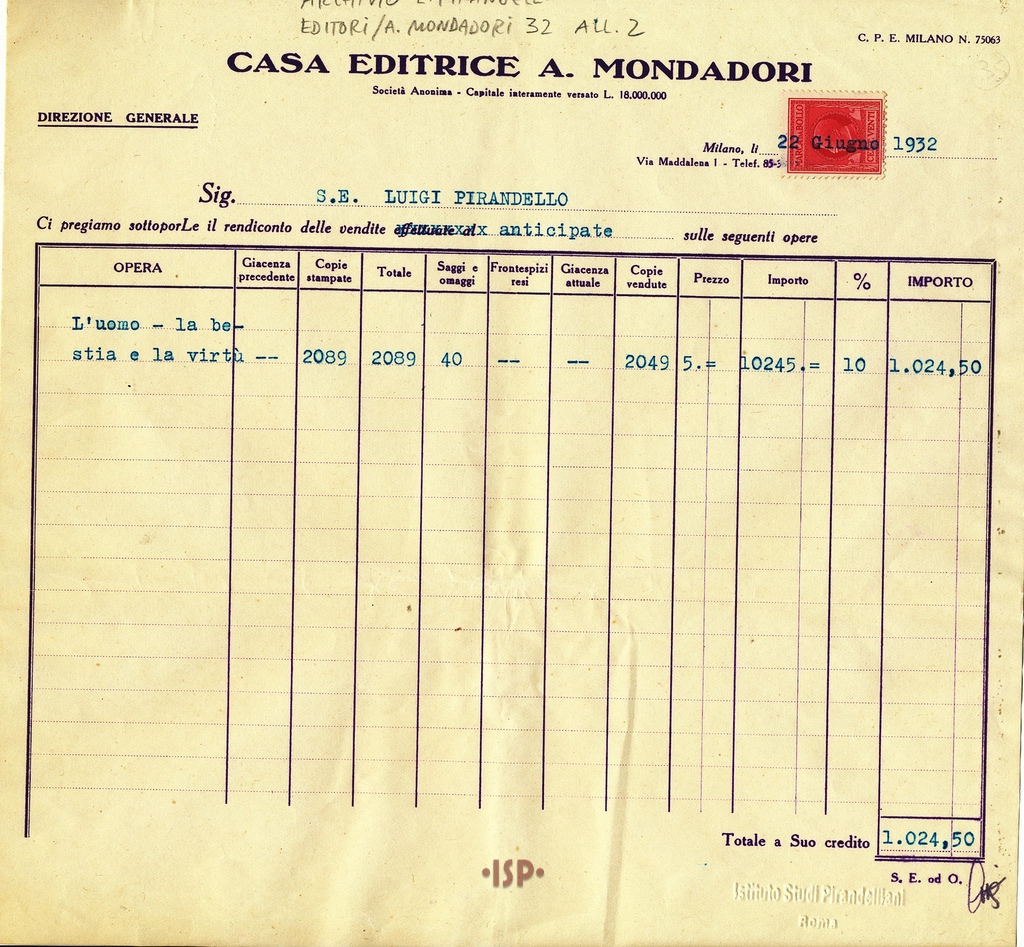 ARCHIVIO
EDITORI/A. MONDADORI 32 ALL. 2
C. P. E. MILANO N. 75063
CASA EDITRICE A. MONDADORI
Società Anonima - Capitale interamente versato L. 18.000.000
DIREZIONE GENERALE
Milano, li 22 Giugno 1932
Via Maddalena 1 - Telef.
Sig. S.E. LUIGI PIRANDELLO
Ci pregiamo sottoporLe il rendiconto delle vendite anticipate sulle seguenti opere
OPERA Giacenza precedente Copie stampate Totale Saggi e omaggi Frontespizi resi Giacenza attuale Copie vendute Prezzo Importo % IMPORTO
L'uomo - la be-
stia e la virtù -- 2089 2089 40 -- -- 2049 5.= 10245.= 10 1.024,50
Totale a Suo credito 1.024,50
S. E. od O.
·ISP·
Istituto Studi Pirandelliani
Roma